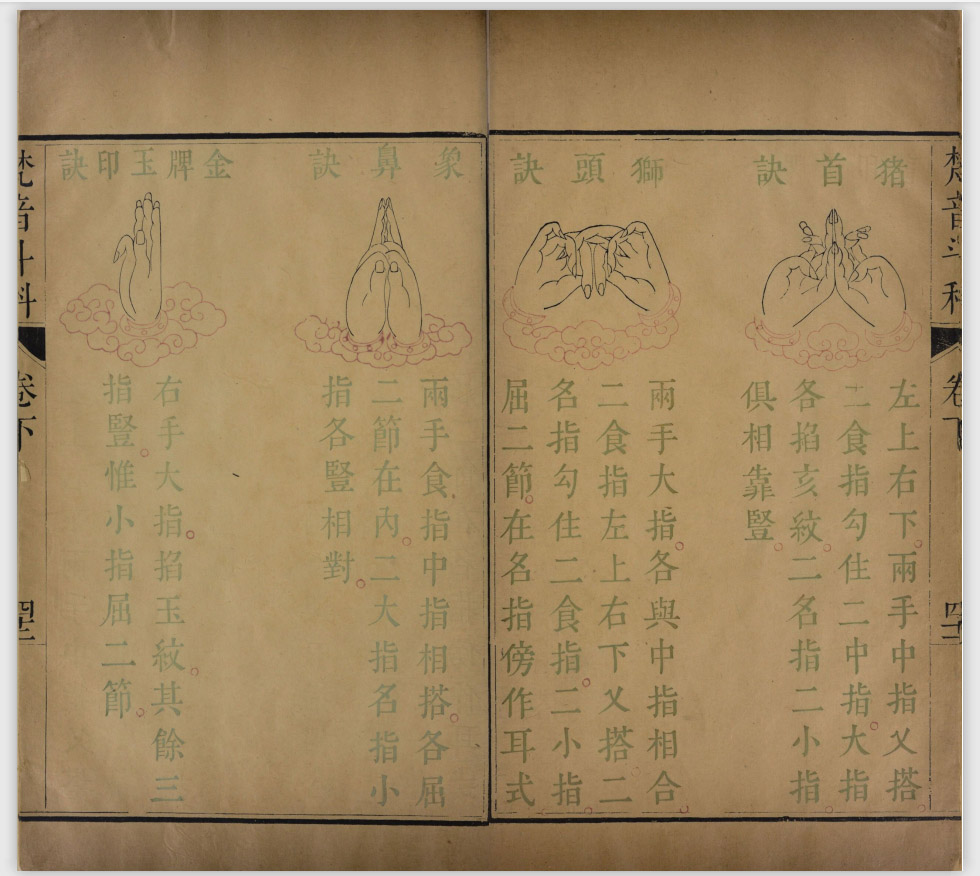 梵音斗科
卷下
四十二
猪首訣
左上右下兩手中指乂搭
二食指勾住二中指大指
各掐亥紋二名指二小指
俱相靠豎
獅頭訣
兩手大指各與中指相合
二食指左上右下乂搭二
名指勾住二食指二小指
屈二節在名指傍作耳式
象鼻訣
兩手食指中指相搭各屈
二節在內二大指名指小
指各豎相對
金牌玉印訣
右手大指掐玉紋其餘三
指豎惟小指屈二節
梵音斗科
卷下